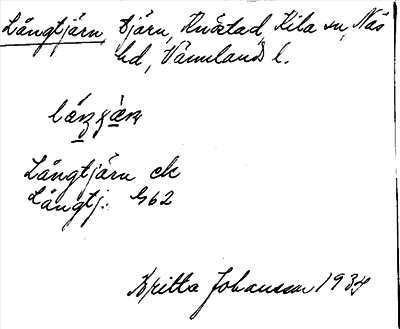 Långtjärn, tjärn, Knöstad, Kila sn, Näs
hd, Värmlands l.
Långtjärn ek
Långtj. G62
Britta Johansson 1934